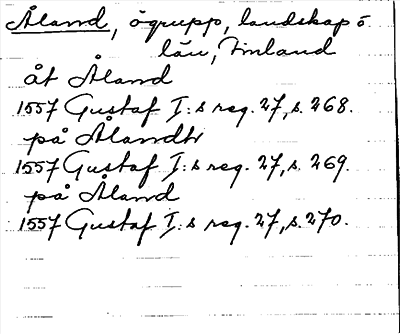 Åland, ögrupp, landskap o
län, Finland
åt Åland
1557 Gustaf I:s reg. 27, s. 268.
på Ålandh
1557 Gustaf I:s reg. 27, s. 269.
på Åland
1557 Gustaf I:s reg. 27, s. 270.